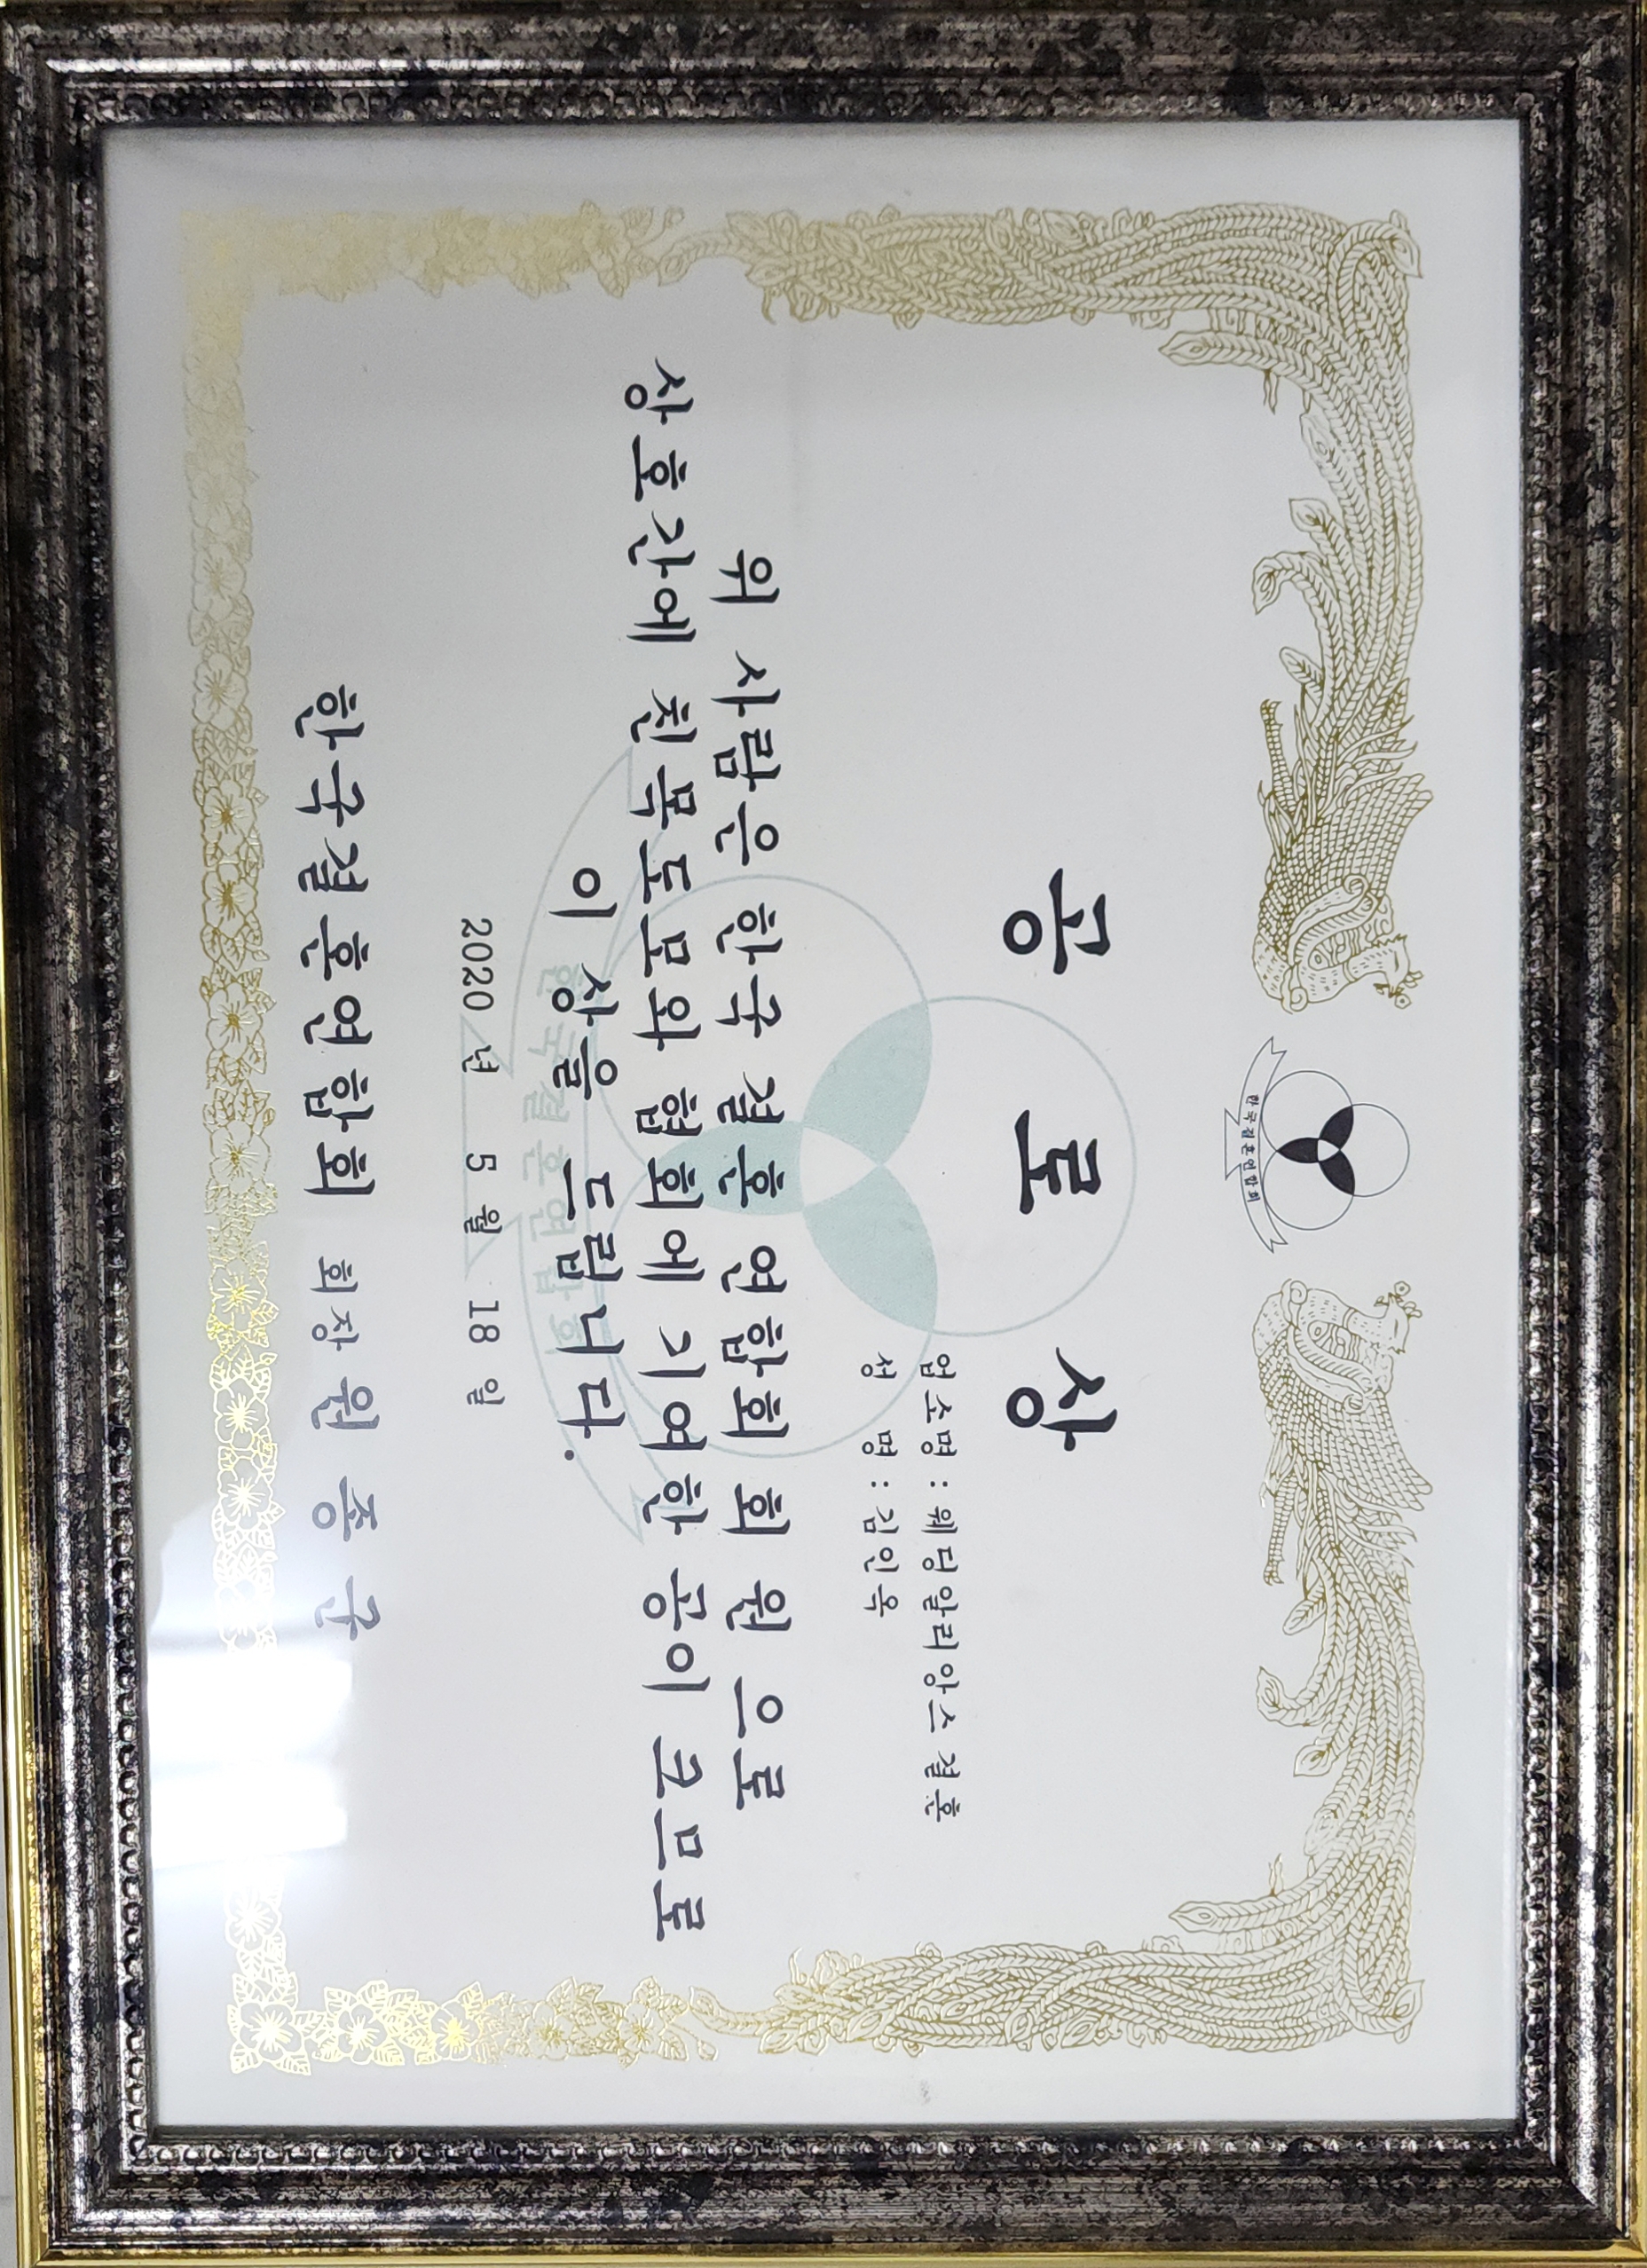 한국결혼연합회
공 로 상
업소명 : 웨딩알리앙스 결혼
성 명 : 김인옥
위 사람은 한국 결혼 연합회 회 원 으로
상호간에 친목도모와 협회에 기여한 공이 크므로
이 상을 드립니다.
한국결혼연합회
2020 년 5 월 18 일
한국결혼연합회 회장 원 종 균